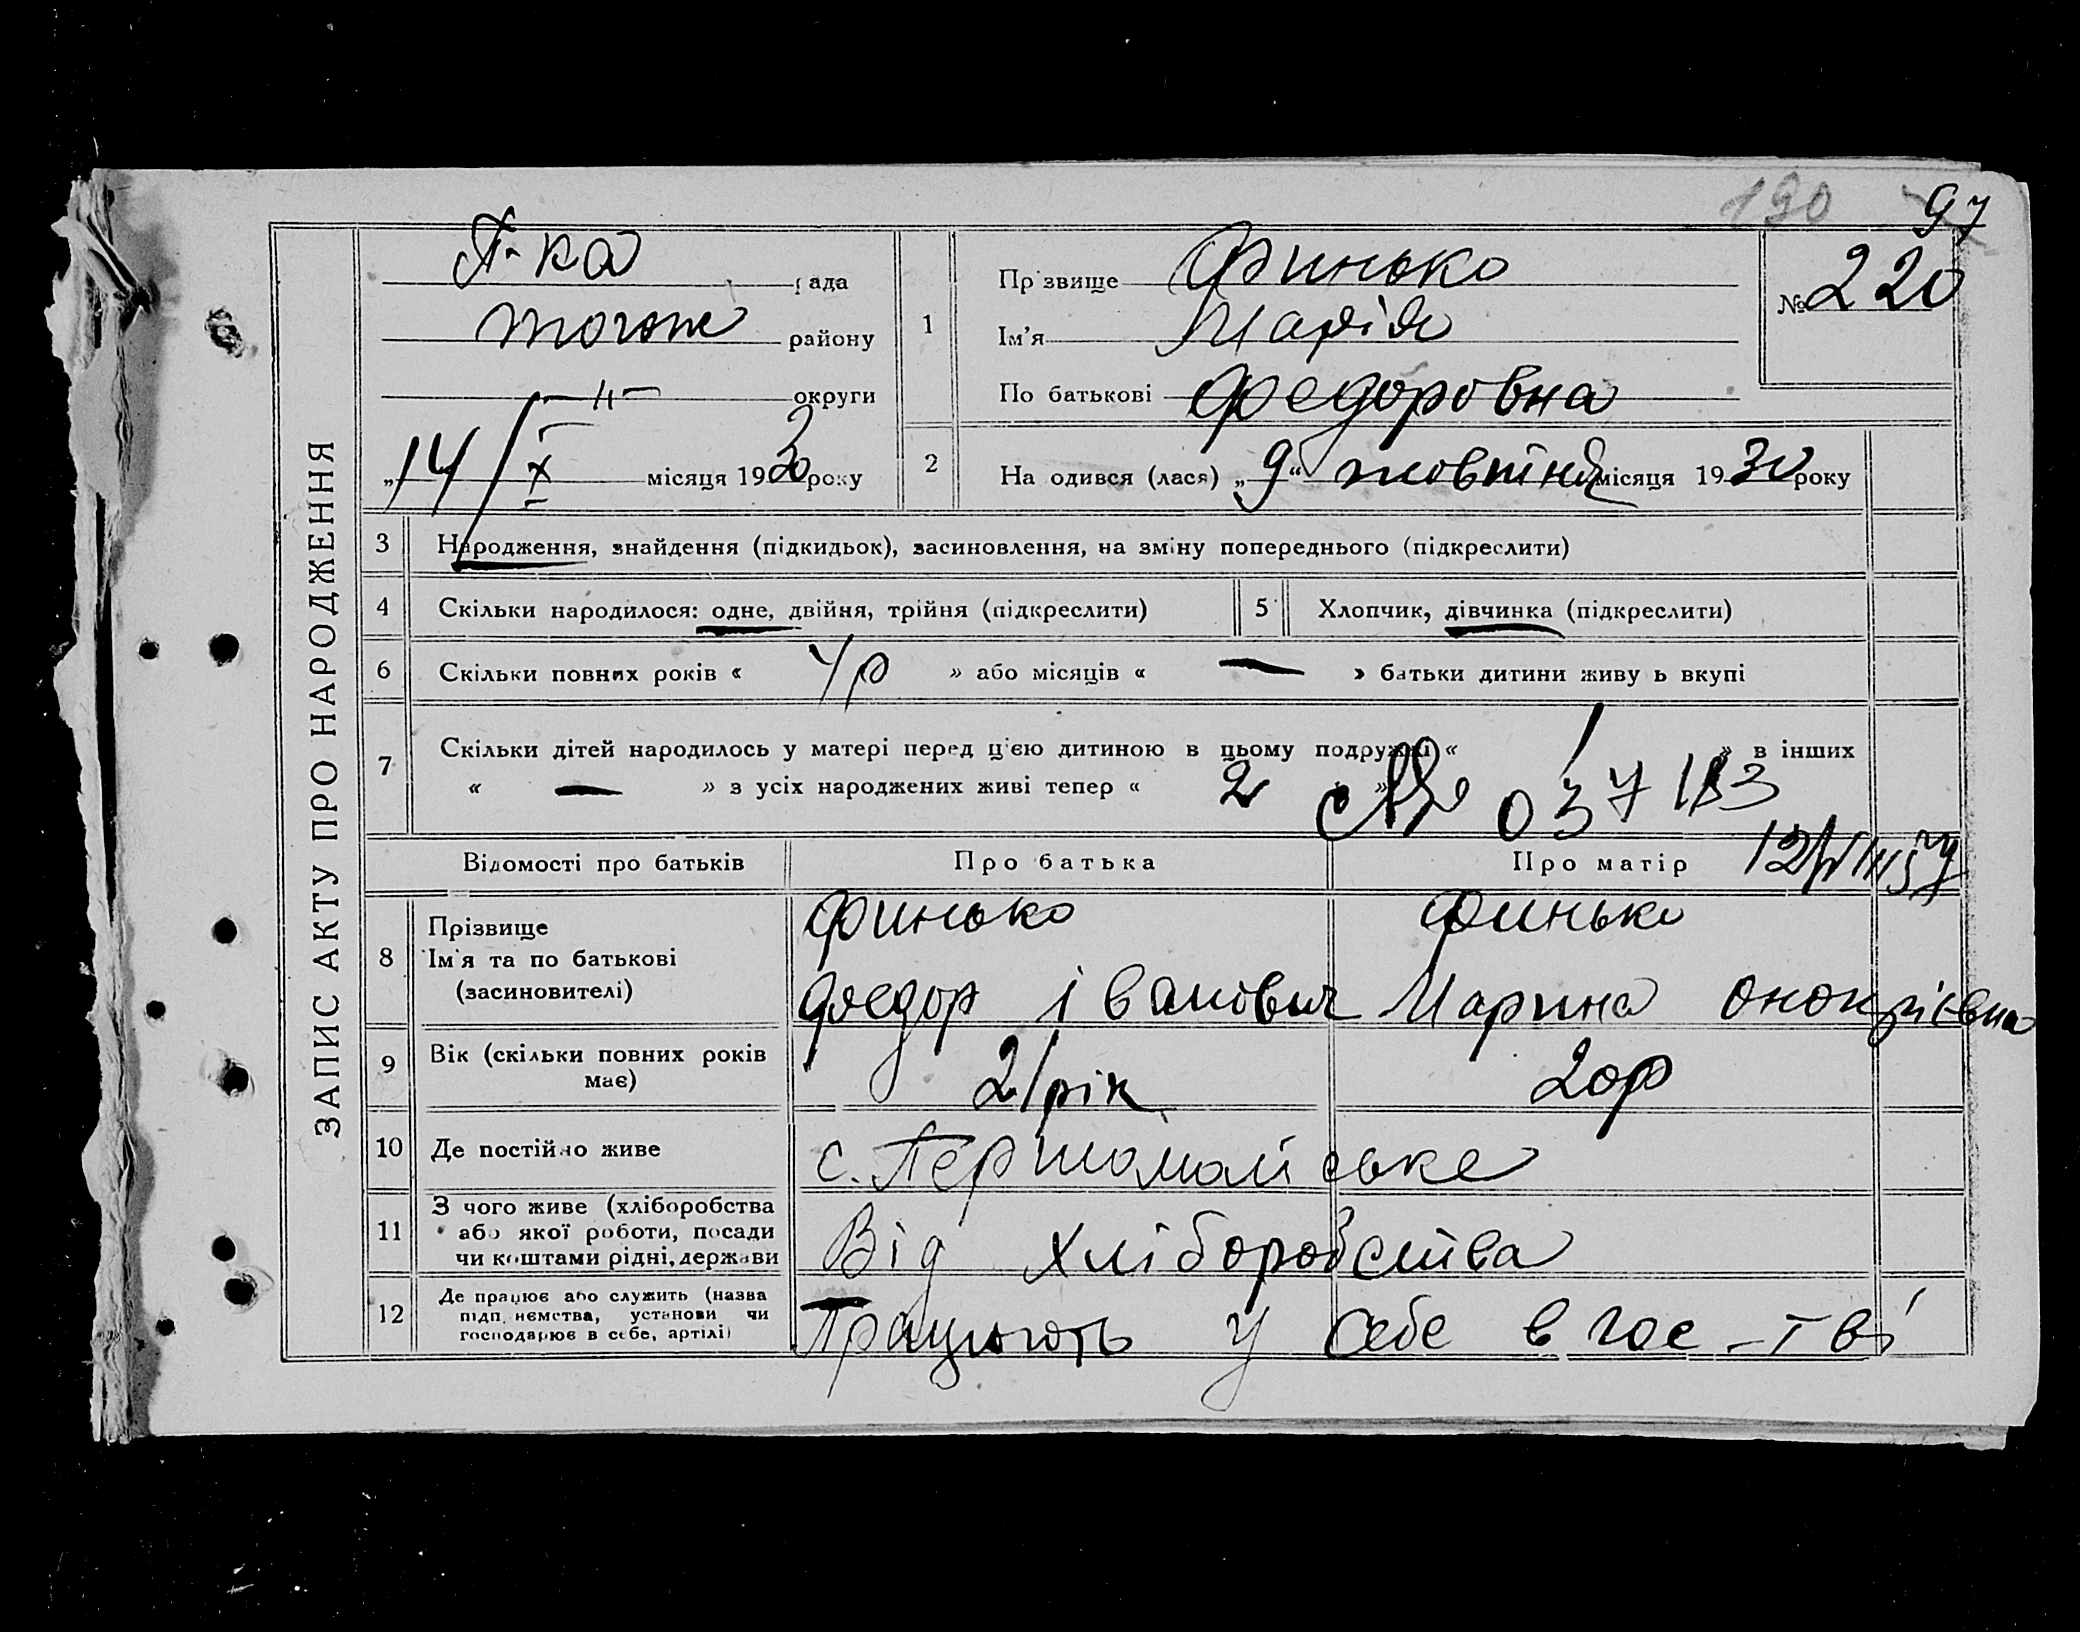 190 97
ЗАПИС АКТУ ПРО НАРОДЖЕННЯ
П-ка рада
тогож районy
—"— округи
„14/X місяця 1930 року
1
Прізвище Финько
Ім'я Марія
По батькові Федоровна
№ 220
2
На одився (лася) „9“ жовтня місяця 1930 року
3 Народження, знайдення (підкидьок), засиновлення, на зміну попереднього (підкреслити)
4 Скільки народилося: одне, двійня, трійня (підкреслити)
5 Хлопчик, дівчинка (підкреслити)
6 Скільки повних років « 4р » або місяців « — » батьки дитини живу ь вкупі
7 Скільки дітей народилось у матері перед цією дитиною в цьому подружжі « 1 » в інших
« — » з усіх народжених живі тепер « 2 »
Відомості про батьків Про батька Про матір
8 Прізвище
Ім'я та по батькові
(засиновителі)
Финько
Федор Іванович
Финько
Марина Онопріевна
9 Вік (скільки повних років
має)
21 рік
20р
10 Де постійно живе
с. Першомайське
11 З чого живе (хліборобства
або якої роботи, посади
чи коштами рідні, держави
Від хліборобства
12 Де працює або служить (назва
підп, немства, установи чи
господарює в себе, артілі)
Працюють у себе в гос-тві